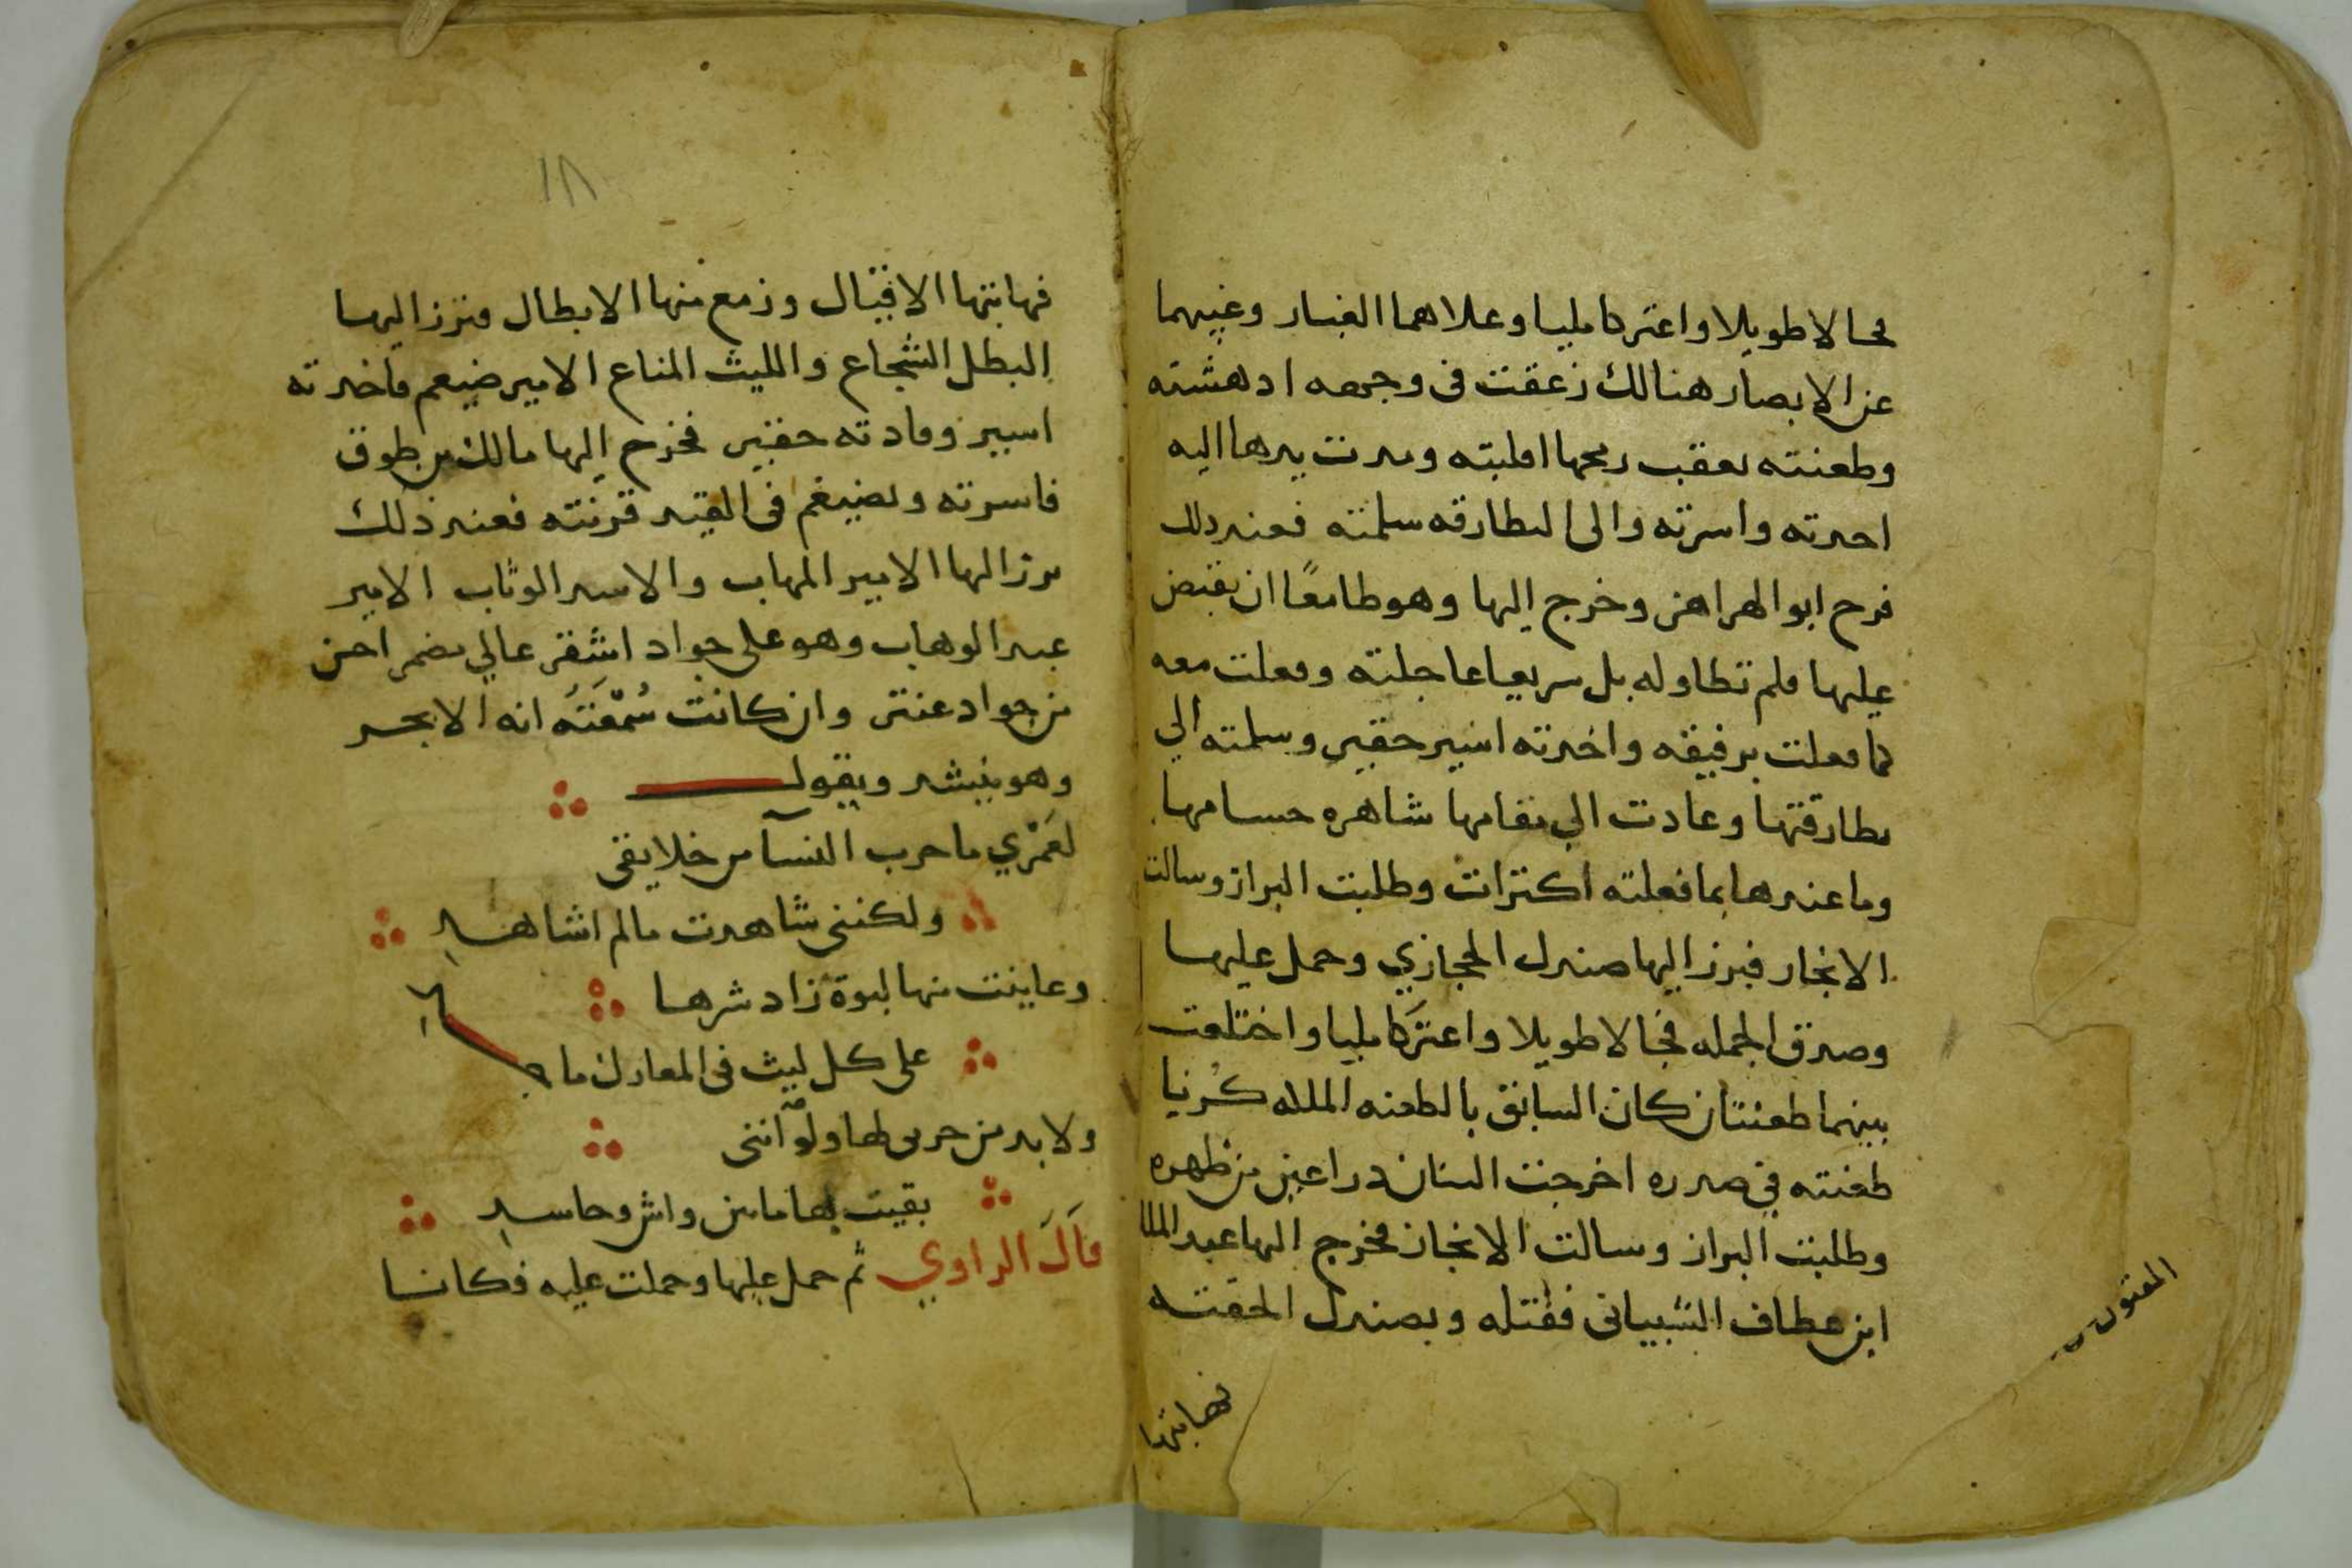 فجالا طويلا واعتركا مليا وعلاهما الغبار وغيبهما
عن الابصار هنالك زعقت فى وجهه ادهشته
وطعنته بعقب رمحها اقلبته ومدت يدها اليه
اخدته واسرته والى البطارقه سلمته فعند دلك
فرح ابو الهزاهز وخرج اليها وهو طامعًا ان يقبض
عليها فلم تطاوله بل سريعا عاجلته وفعلت معه
كما فعلت برفيقه واخدته اسير حقير وسلمته الي
بطارقتها وعادت الي مقامها شاهره حسامها
وما عندها بما فعلته اكتراث وطلبت البراز وسالت
الانجاز فبرز اليها صندل الحجازي وحمل عليها
وصدق الحمله فجالا طويلا واعتركا مليا واختلفت
بينهما طعنتان كان السابق بالطعنه الملكه كُرنيا
طعنته في صدره اخرجت السنان دراعين من ظهره
وطلبت البراز وسالت الانجاز فخرج اليها عبد الملك
ابن عطاف الشيبانى فقتله وبصندل الحقته
فهابتها
فهابتها الاقيال وزمع منها الابطال فبرز اليها
البطل الشجاع والليث المناع الامير ضيغم فاخدته
اسير وقادته حقير فخرج اليها مالك بن طوق
فاسرته وبضيغم فى القيد قرنته فعند ذلك
برز الها الامير المهاب والاسد الوثاب الامير
عبد الوهاب وهو على جواد اشقر عالي مضمر احسن
من جواد عنتر وان كانت سُمْعَتُه انه الابجر
وهو ينشد ويقول
لعَمْري ما حرب النسآ من خلايقى
ولكننى شاهدت مالم اشاهد
وعاينت منها لبوة زاد شرها
على كل ليث فى المعارك ماجد
ولابد من حربى لها ولوْ آننى
بقيت بها مابين واش وحاسد
قالَ الراوي ثم حمل عليها وحملت عليه فكانا